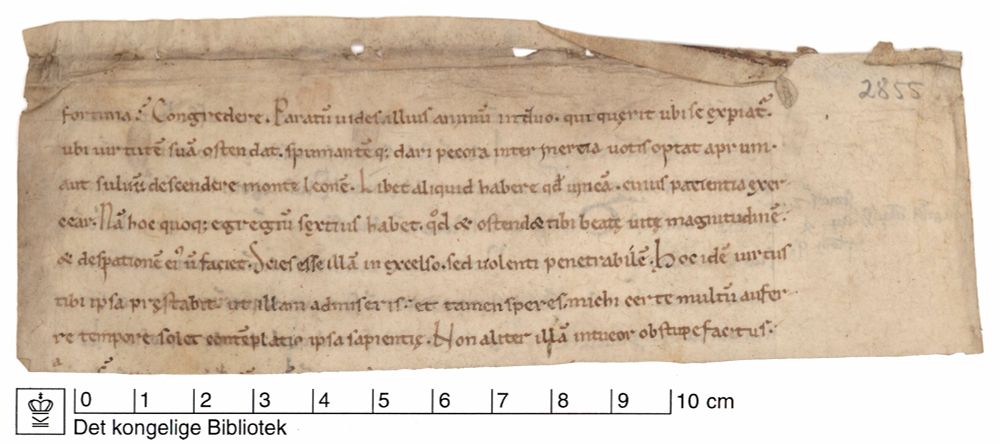 fortuna .᷒ Congredere . Paratū uides. illius animū induo . qui querit ubi se expiat᷒.
ubi uirtutē suā ostendat. spumantēq; dari pecora inter inertia uotis optat aprum .
aut fuluū descendere monte leonē. Libet aliquid habere qđ uincā . cuius patientia exer-
cear. Nā hoc quoq; egregiū sextius habet. qđ & ostendet tibi beatę uitę magnitudinē.
& despationē ei᷒ ñ faciet. Scies esse illā in excelso. sed uolenti penetrabilē. Hoc idē uirtus
tibi ipsa pręstabit. ut illam admireris. et tamen speres. michi certe multū aufer-
re tempore solet contēplatio ipsa sapientię. Non aliter illā intueor obstupefactus.
2855
0 1 2 3 4 5 6 7 8 9 10 cm
Det kongelige Bibliotek